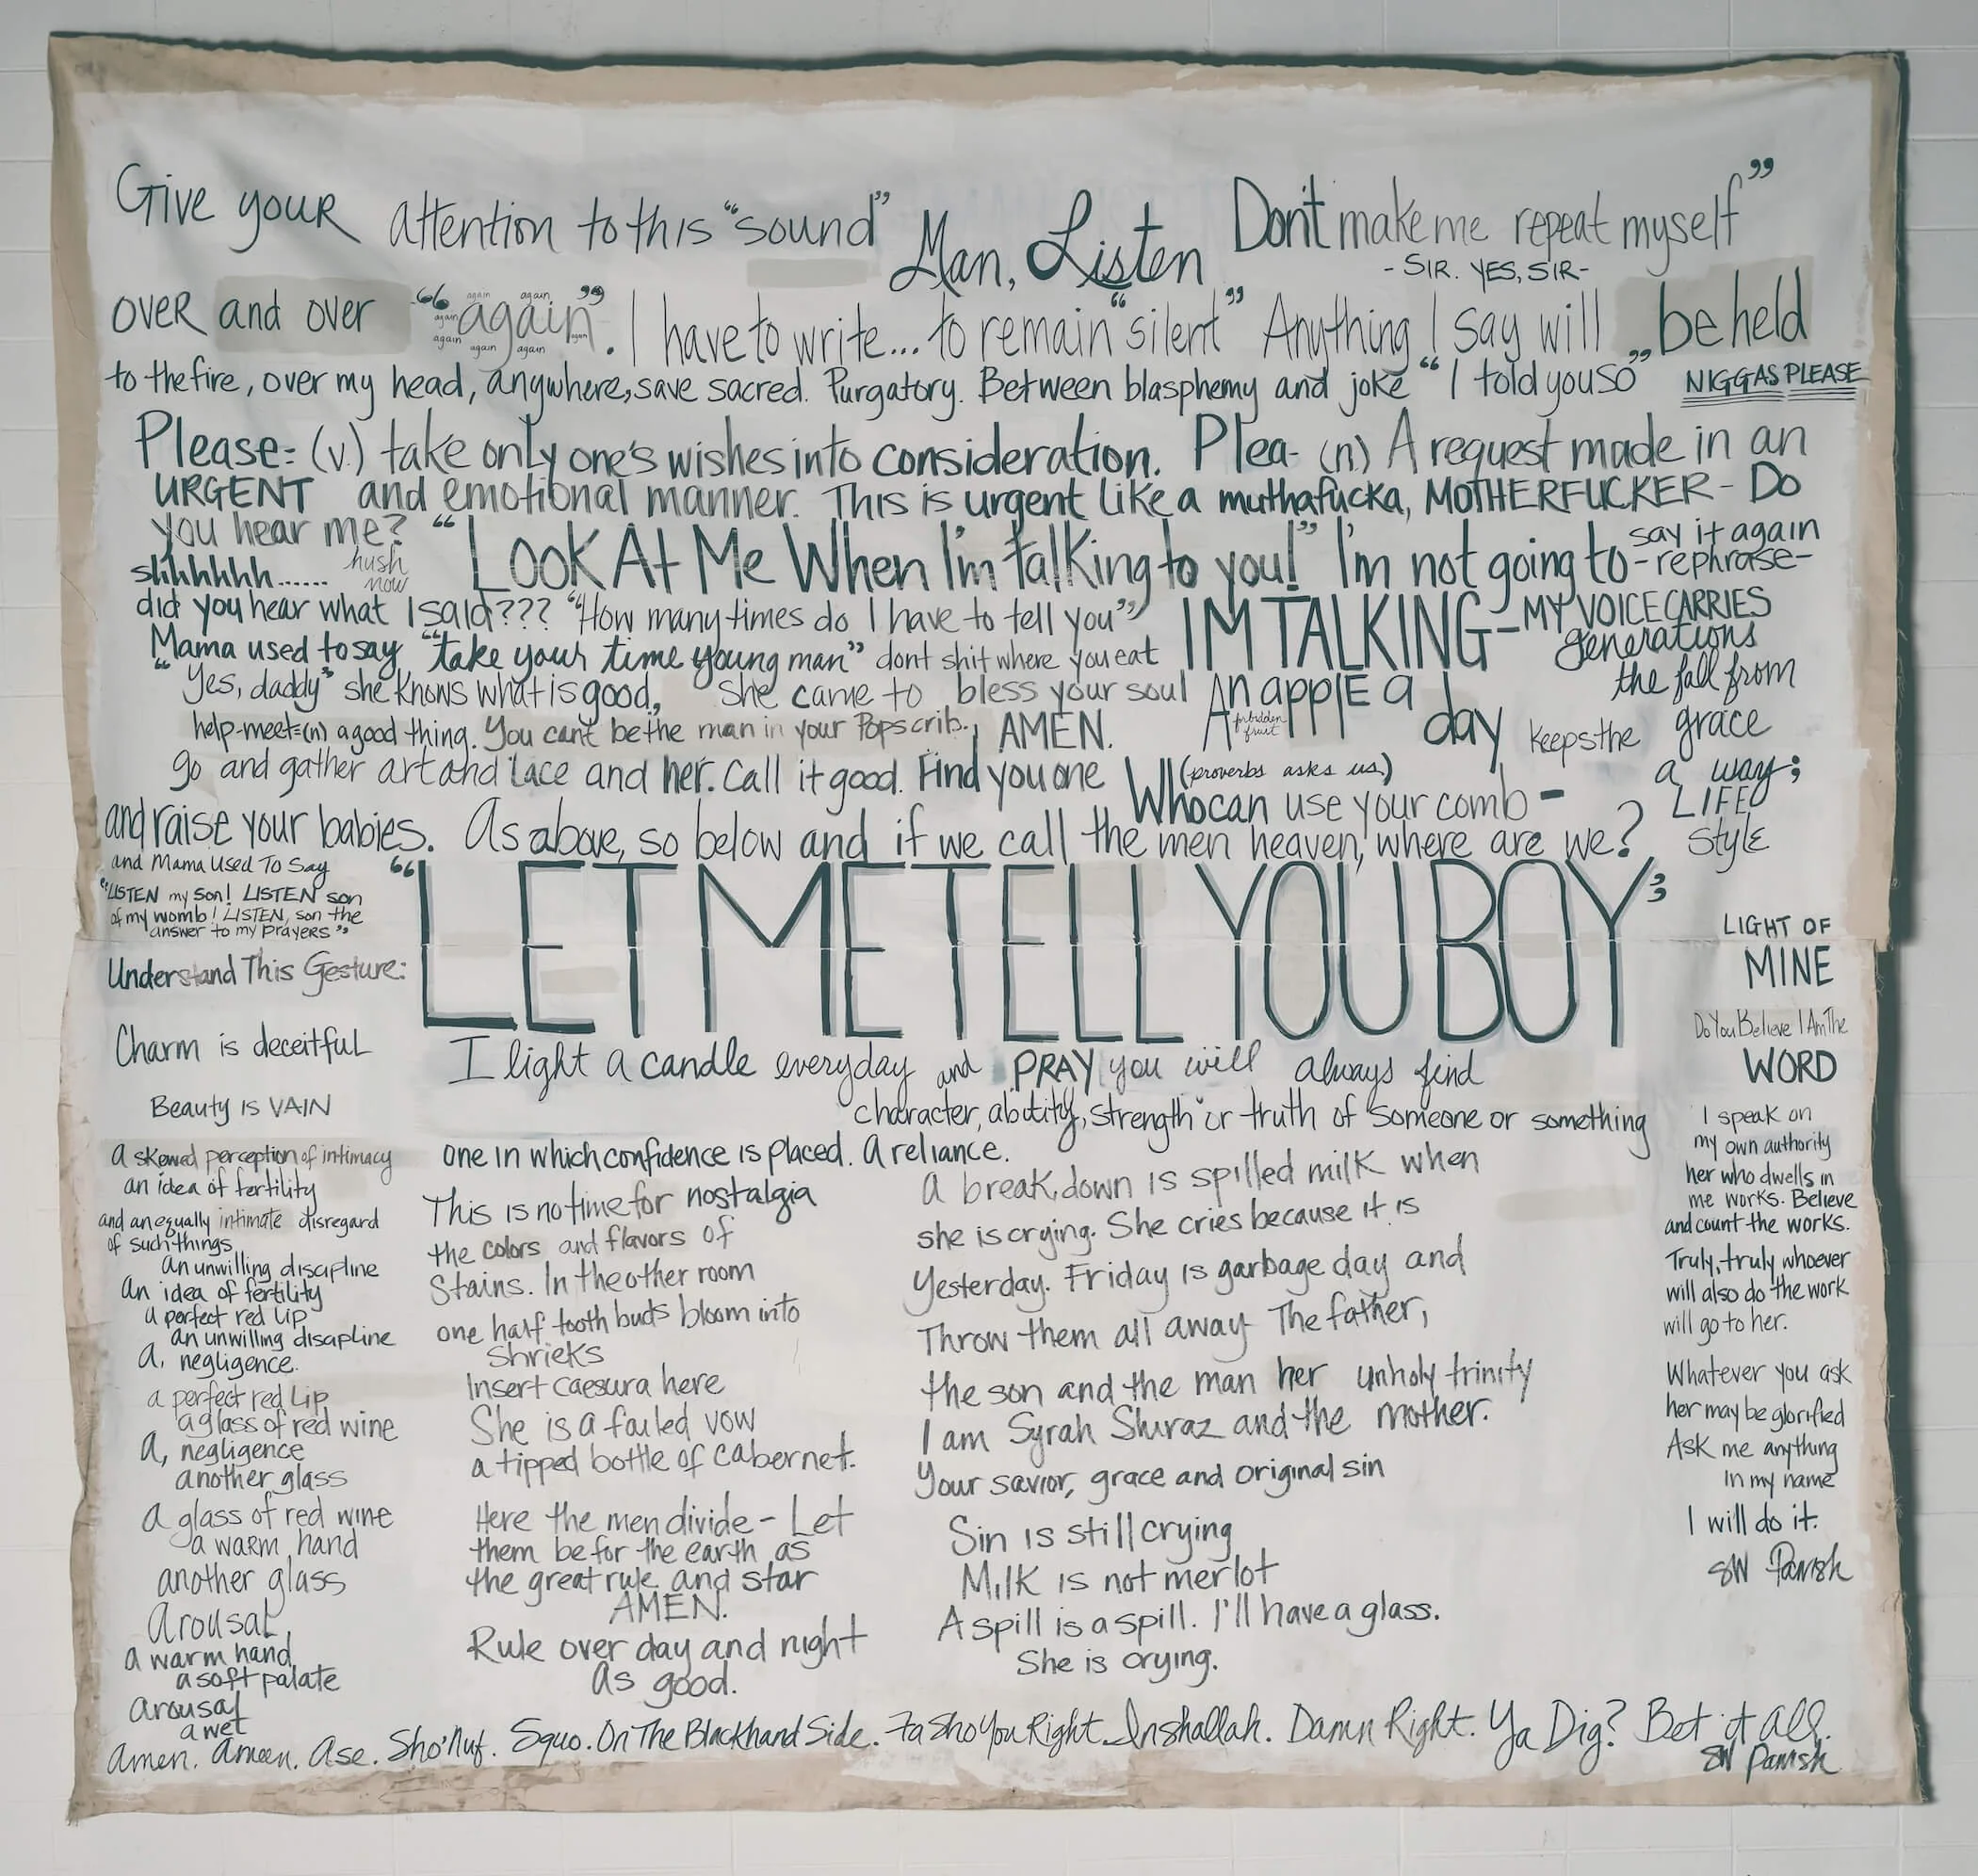 Give your attention to this "sound" Man, Listen Don't make me repeat myself"
- SIR. YES, SIR-
over and over "again". I have to write... to remain "silent" Anything I say will be held
again again again again again again again again
to the fire, over my head, anywhere, save sacred. Purgatory. Between blasphemy and joke "I told you so" NIGGAS PLEASE
Please: (v.) take only one's wishes into consideration. Plea- (n) A request made in an
URGENT and emotional manner. This is urgent like a muthafucka, MOTHERFUCKER- Do
you hear me? "Look At Me When I'm talking to you!" I'm not going to -rephrase-
say it again
shhhhhh...... hush now
did you hear what I said??? "How many times do I have to tell you" IM TALKING- MY VOICE CARRIES
generations
Mama used to say "take your time young man" dont shit where you eat
the fall from
"Yes, daddy" she knows what is good, she came to bless your soul An applE a day keeps the grace
forbidden fruit
help-meet=(n) a good thing. You can't be the man in your Pops crib. AMEN.
a way;
go and gather art and lace and her. Call it good. Find you one Who can use your comb-
(proverbs asks us.)
LIFE
style
and raise your babies. As above, so below and if we call the men heaven, where are we?
and Mama Used To Say
"LISTEN my son! LISTEN son
of my womb! LISTEN, son the
answer to my prayers"
"LET ME TELL YOU BOY"
Understand This Gesture:
Charm is deceitful
Beauty is VAIN
I light a candle everyday and PRAY you will always find
character, ability, strength or truth of someone or something
one in which confidence is placed. A reliance.
a skewed perception of intimacy
an idea of fertility
and an equally intimate disregard
of such things
an unwilling discipline
An idea of fertility
a perfect red lip
an unwilling discipline
A, negligence.
a perfect red lip
a glass of red wine
A, negligence
another glass
A glass of red wine
a warm hand
another glass
Arousal,
a warm hand,
a soft palate
arousal
a wet
This is no time for nostalgia
the colors and flavors of
Stains. In the other room
one half tooth buds bloom into
shrieks
Insert caesura here
She is a failed vow
a tipped bottle of cabernet.
Here the men divide - Let
them be for the earth as
the great rule and star
AMEN.
Rule over day and night
As good.
A break down is spilled milk when
she is crying. She cries because it is
Yesterday. Friday is garbage day and
Throw them all away The father,
the son and the man her unholy trinity
I am Syrah Shiraz and the mother.
Your savior, grace and original sin
Sin is still crying
Milk is not merlot
A spill is a spill. I'll have a glass.
She is crying.
LIGHT OF
MINE
Do You Believe I Am The
WORD
I speak on
my own authority
her who dwells in
me works. Believe
and count the works.
Truly, truly whoever
will also do the work
will go to her.
Whatever you ask
her may be glorified
Ask me anything
in my name
I will do it.
SW Parrish
Amen. Ameen. Ase. Sho'Nuf. Squo. On The Blackhand Side. Fa Sho You Right. Inshallah. Damn Right. Ya Dig? Bet it all.
SW Parrish